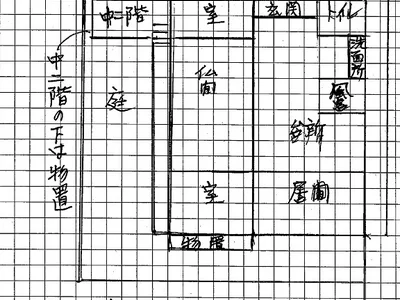 中二階
室
玄関
トイレ
洗面所
中二階の下は物置
庭
仏間
台所
室
居間
物置